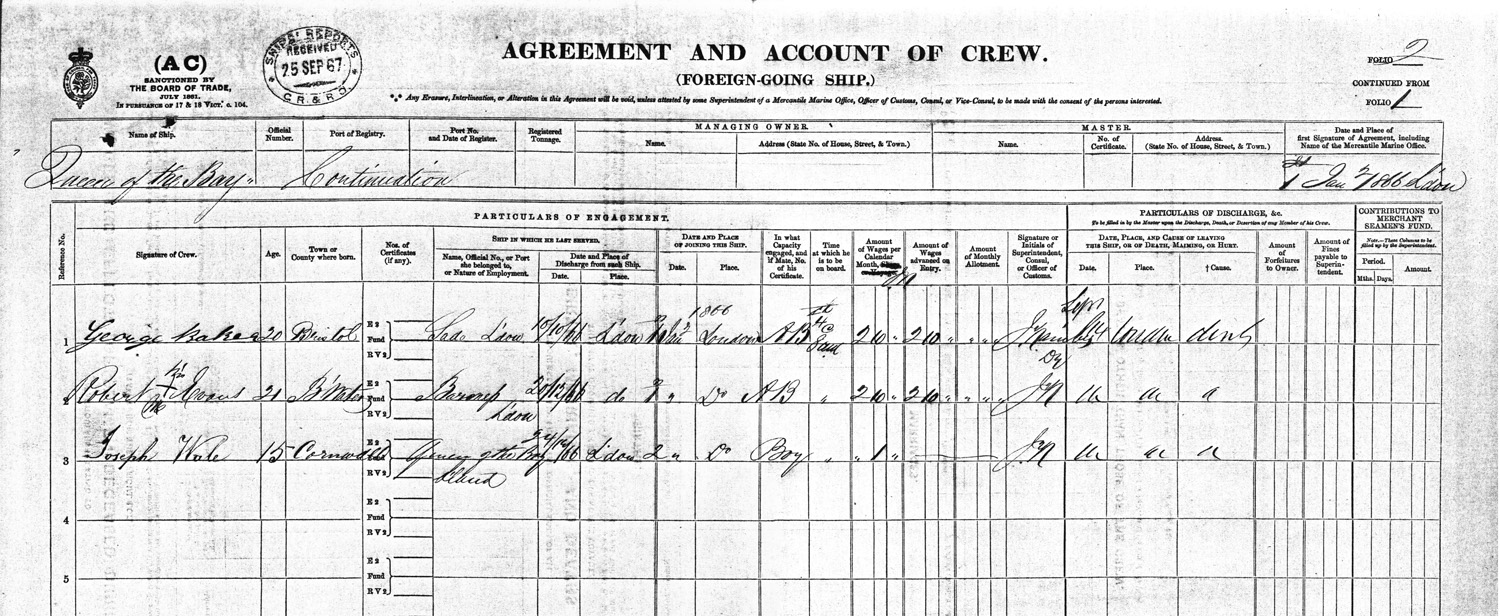 AGREEMENT AND ACCOUNT OF CREW.
(FOREIGN-GOING SHIP.)
(A C)
SANCTIONED BY
THE BOARD OF TRADE,
JULY 1861.
IN PURSUANCE OF 17 & 18 VICT. c. 104.
SHIPS' REPORTS
RECEIVED
25 SEP 67
C.R.&R.O.
FOLIO 2
CONTINUED FROM
FOLIO 1
*** Any Erasure, Interlineation, or Alteration in this Agreement will be void, unless attested by some Superintendent of a Mercantile Marine Office, Officer of Customs, Consul, or Vice-Consul, to be made with the consent of the persons interested.
Name of Ship.
Official Number.
Port of Registry.
Port No. and Date of Register.
Registered Tonnage.
MANAGING OWNER.
Name.
Address (State No. of House, Street, & Town.)
MASTER.
Name.
No. of Certificate.
Address. (State No. of House, Street, & Town.)
Date and Place of first Signature of Agreement, including Name of the Mercantile Marine Office.
Queen of the Bay
Continuation
Jan 1866 L'don
PARTICULARS OF ENGAGEMENT.
PARTICULARS OF DISCHARGE, &c.
To be filled in by the Master upon the Discharge, Death, or Desertion of any Member of his Crew.
CONTRIBUTIONS TO MERCHANT SEAMEN'S FUND.
Note.—These Columns to be filled up by the Superintendent.
Reference No.
Signature of Crew.
Age.
Town or County where born.
Nos. of Certificates (if any).
SHIP IN WHICH HE LAST SERVED.
Name, Official No., or Port she belonged to, or Nature of Employment.
Date and Place of Discharge from such Ship.
Date.
Place.
DATE AND PLACE OF JOINING THIS SHIP.
Date.
Place.
In what Capacity engaged, and if Mate, No. of his Certificate.
Time at which he is to be on board.
Amount of Wages per Calendar Month,
Amount of Wages advanced on Entry.
Amount of Monthly Allotment.
Signature or Initials of Superintendent, Consul, or Officer of Customs.
DATE, PLACE, AND CAUSE OF LEAVING THIS SHIP, OR OF DEATH, MAIMING, OR HURT.
Date.
Place.
† Cause.
Amount of Forfeitures to Owner.
Amount of Fines payable to Superintendent.
Period.
Mths. Days.
Amount.
1 George Baker 20 Bristol E 2 Fund R V 2 L'don 15/10/66 L'don Jan 1866 London AB 2 10 " 2 10 " Sept London
2 Robert Evans 21 B'Water E 2 Fund R V 2 L'don 20/12/66 do " Do AB " 2 10 " 2 10 " JN
3 Joseph 15 Cornwall E 2 Fund R V 2 Queen of the Bay 24/12/66 L'don 2 " Do Boy " " 1 " JN
4 E 2 Fund R V 2
5 E 2 Fund R V 2